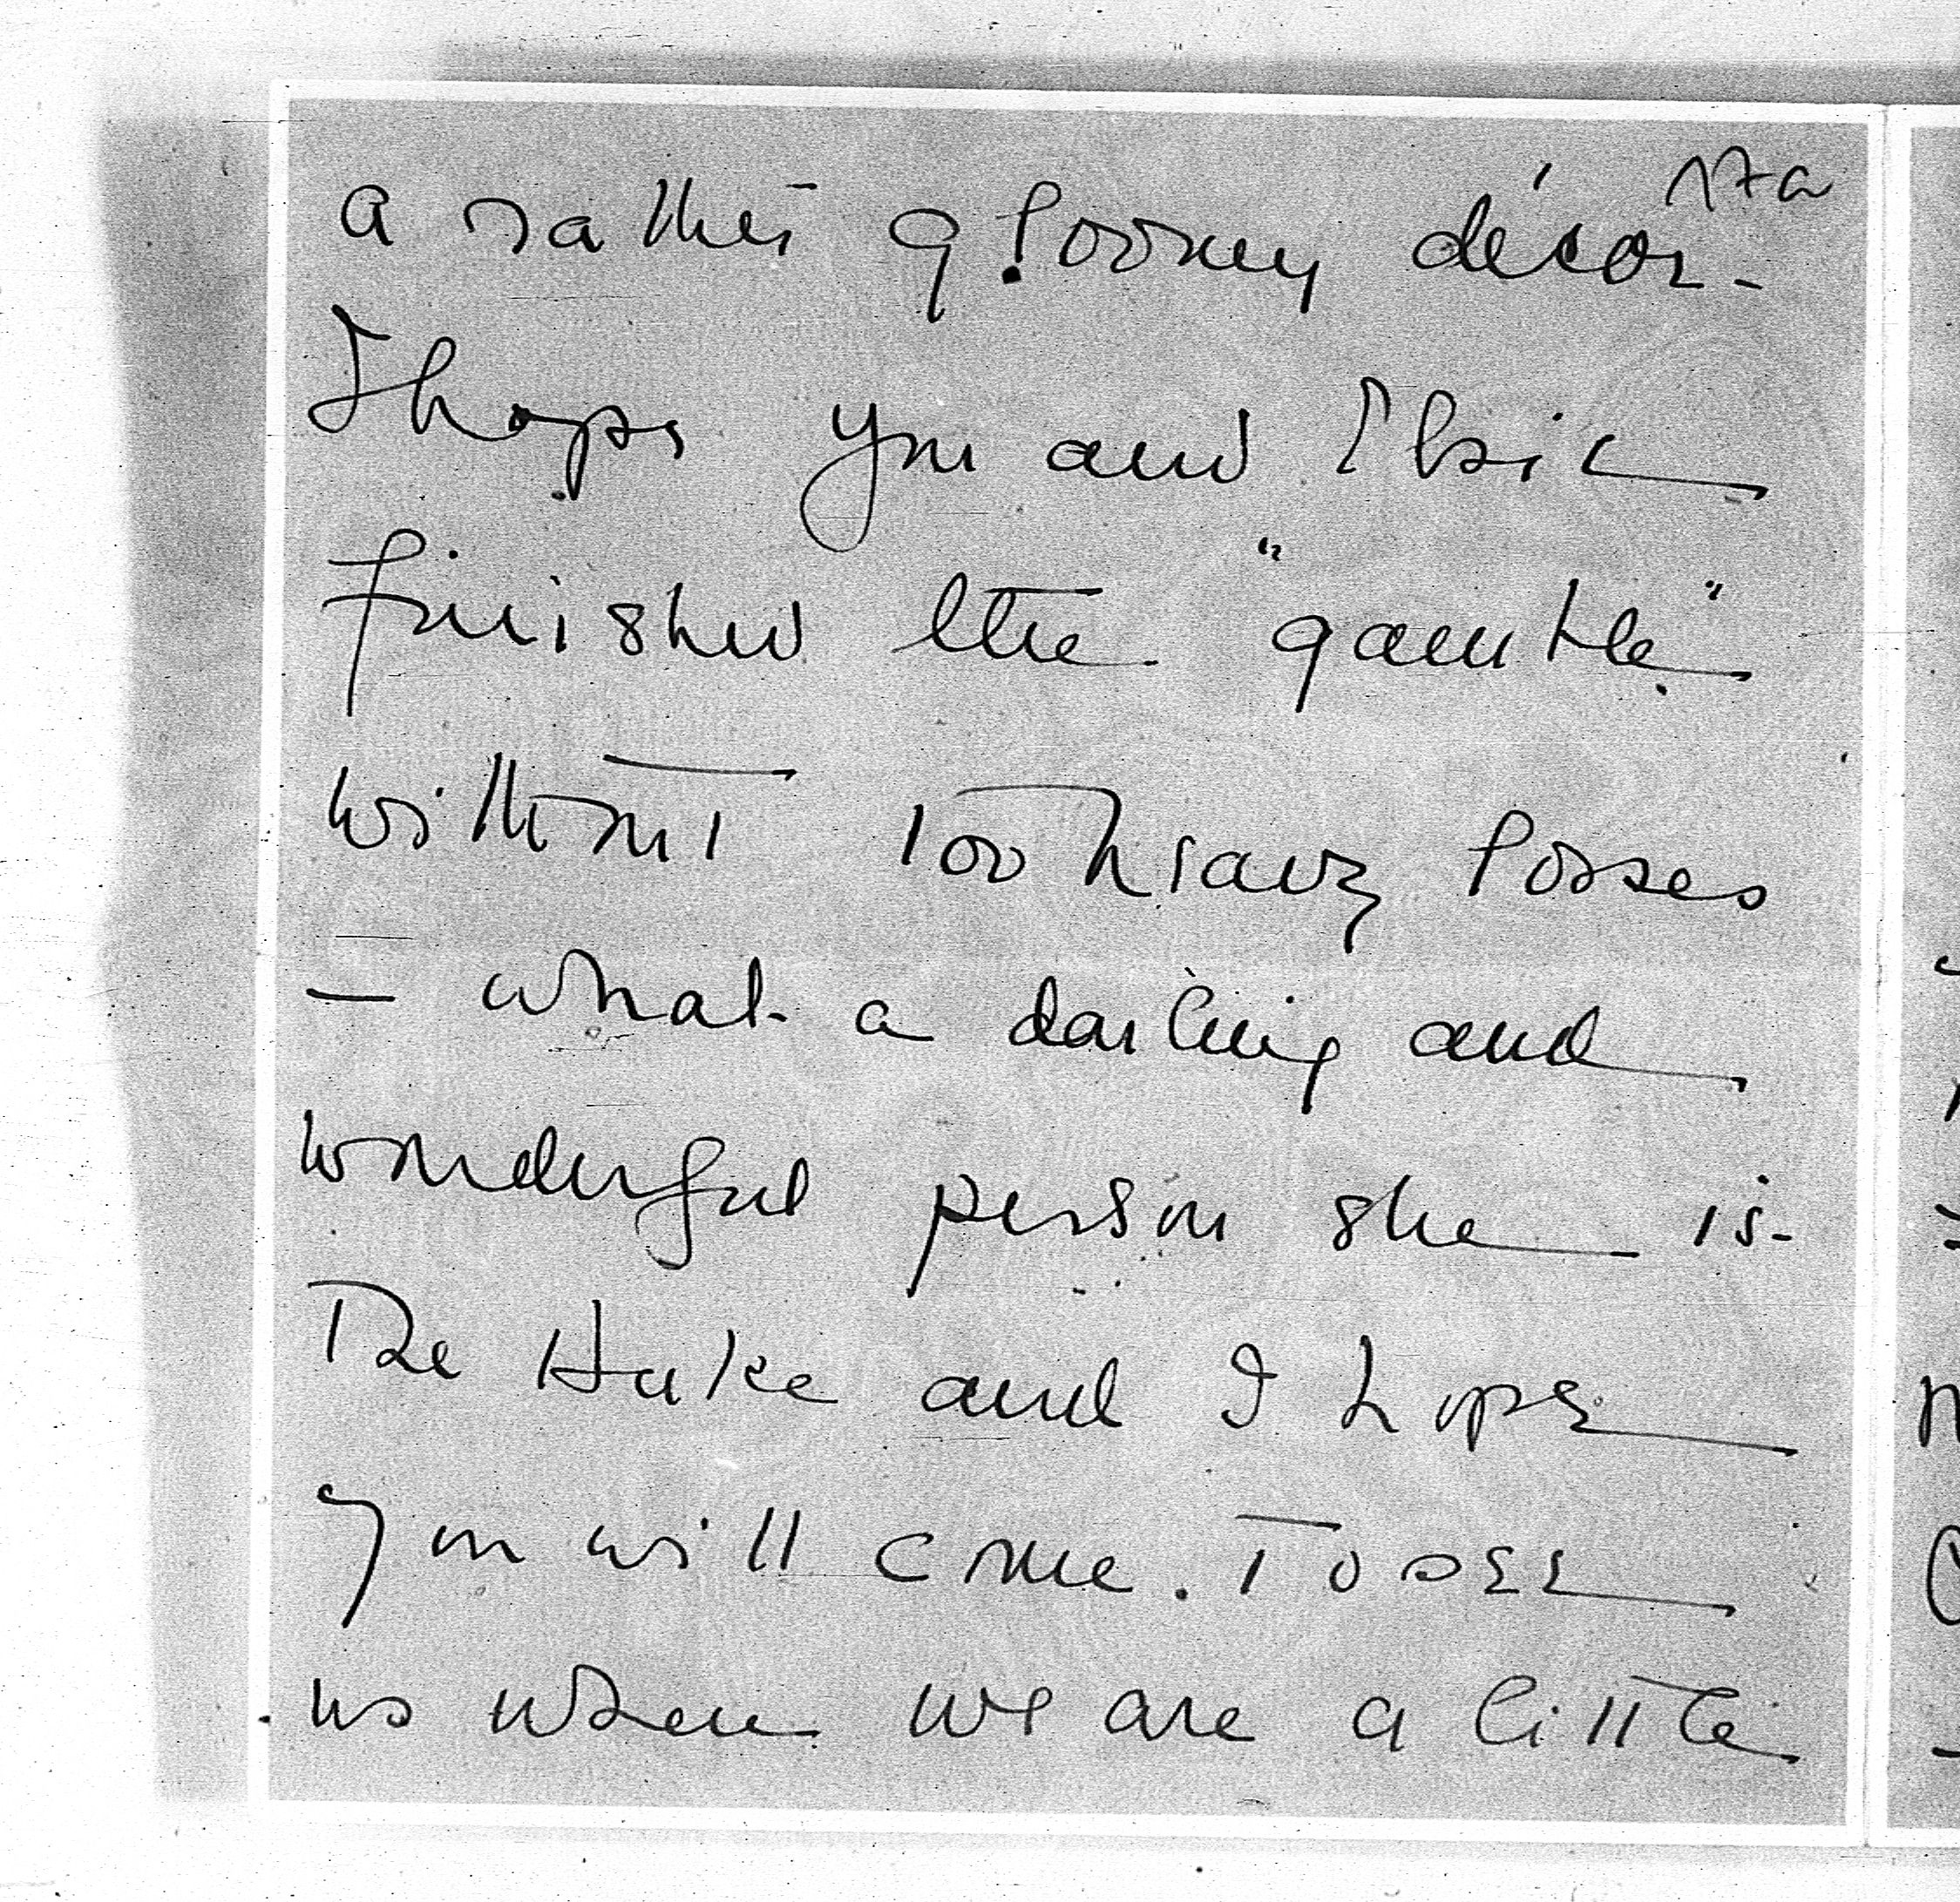 17a
a rather gloomy décor -
I hope you and Elsie
finished the "gamble"
without too heavy losses
— what a darling and
wonderful person she is -
The Duke and I hope
you will come to see
us when we are a little